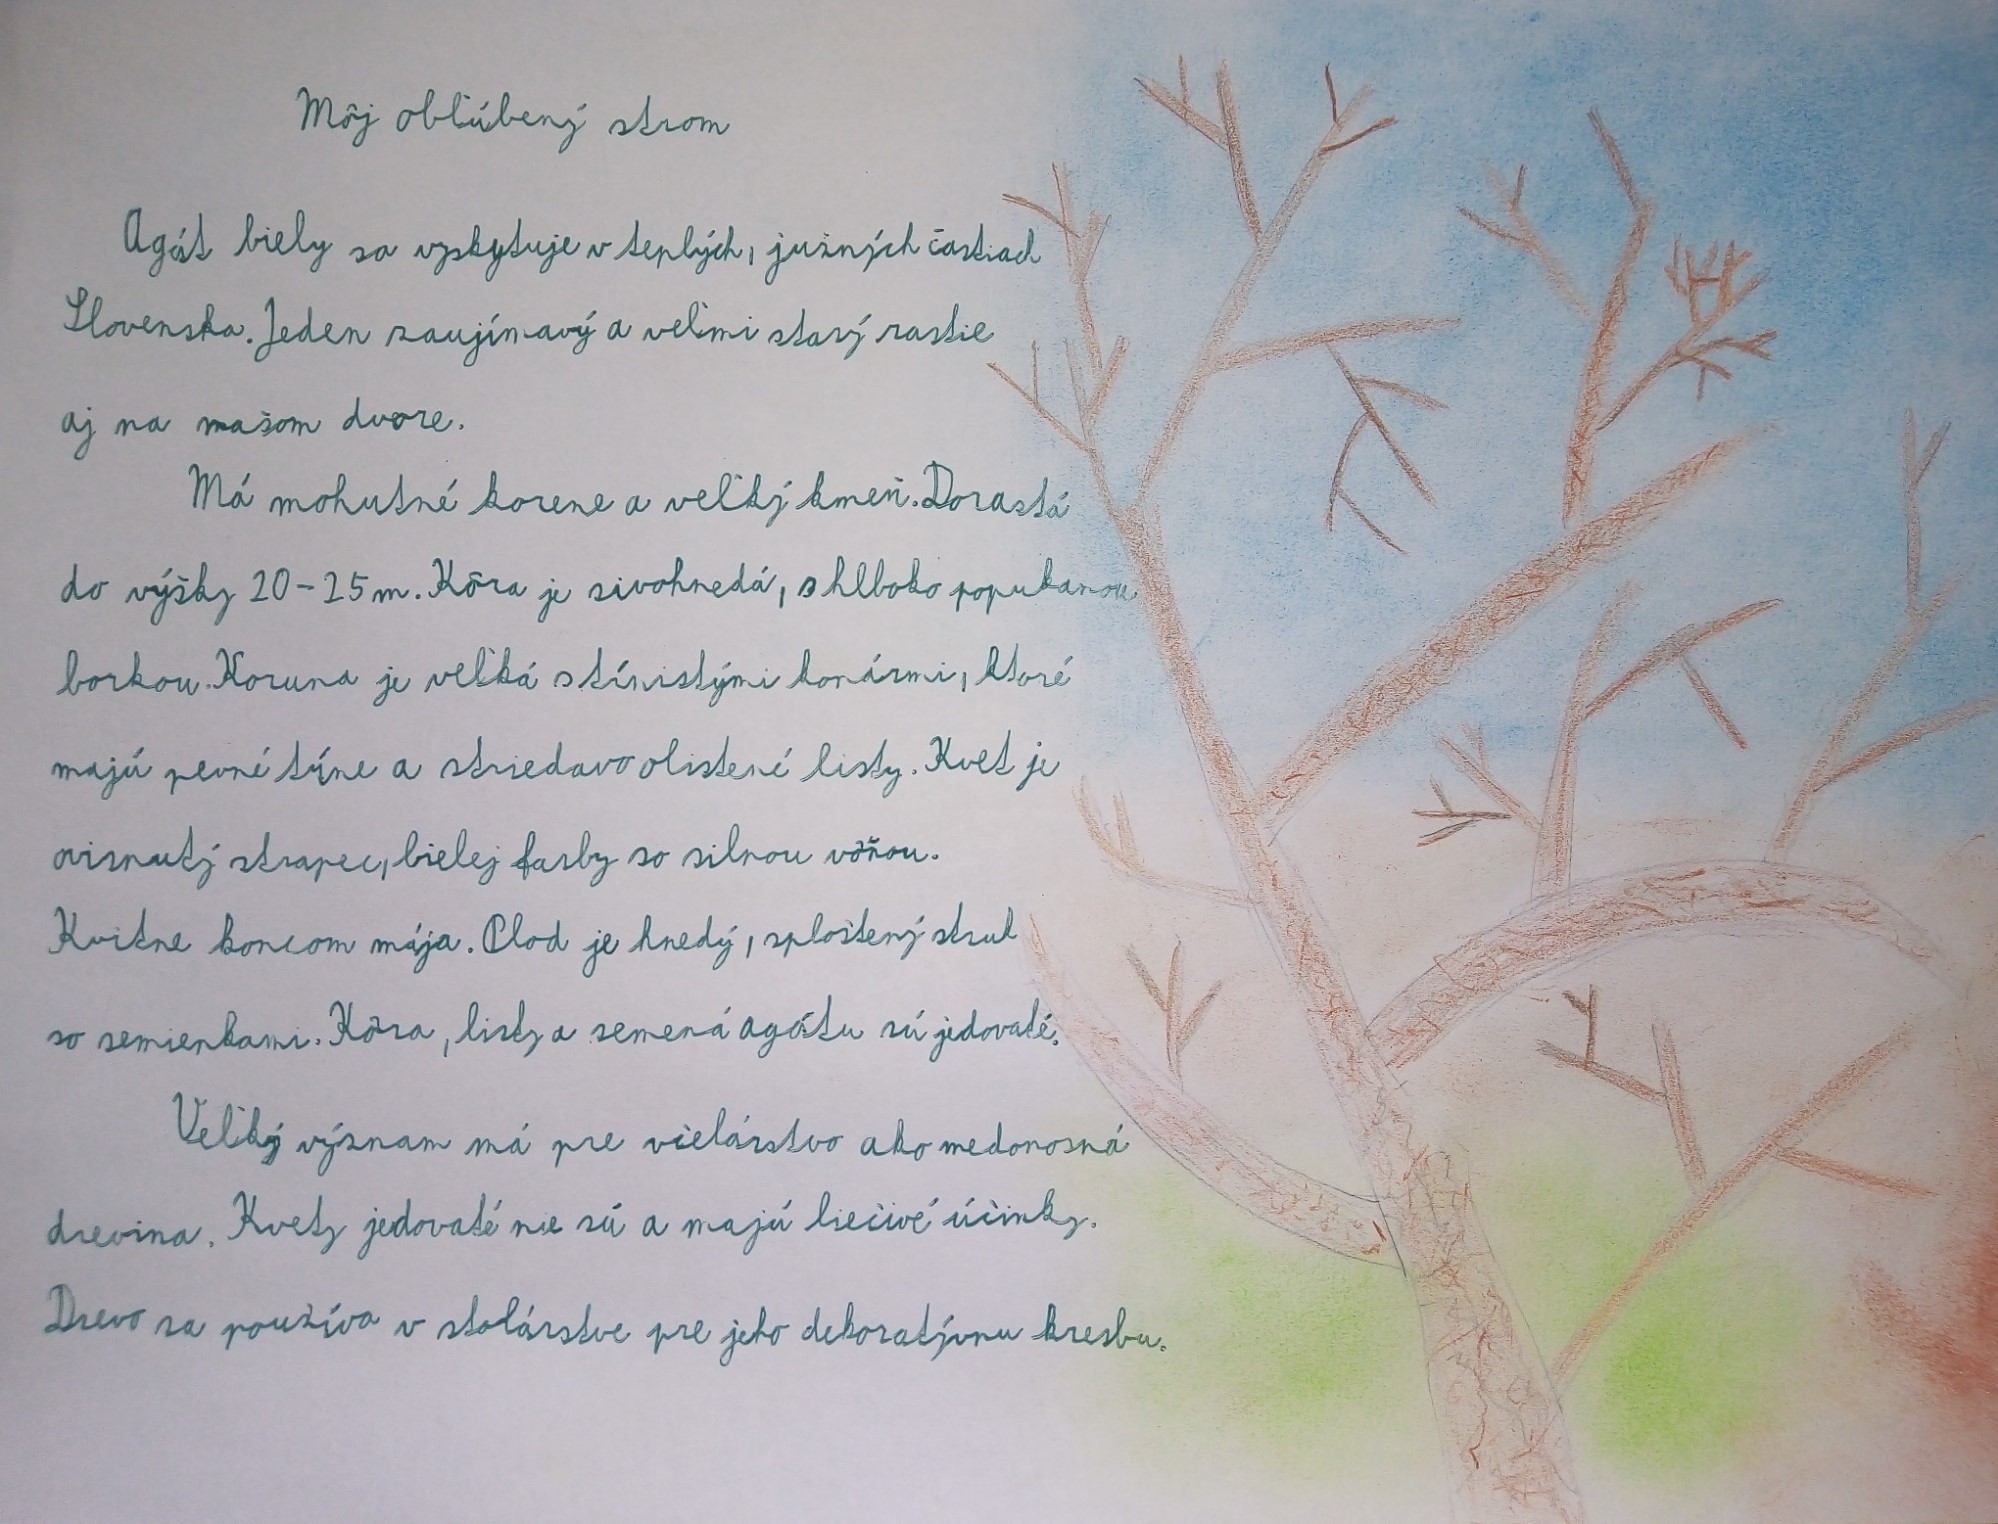 Môj obľúbený strom
Agát biely sa vyskytuje v teplých, južných častiach
Slovenska. Jeden zaujímavý a veľmi starý rastie
aj na našom dvore.
Má mohutné korene a veľký kmeň. Dorastá
do výšky 20-25m. Kôra je sivohnedá, s hlboko popukanou
borkou. Koruna je veľká s tŕnistými konármi, ktoré
majú pevné tŕne a striedavo olistené listy. Kvet je
ovisnutý strapec, bielej farby so silnou vôňou.
Kvitne koncom mája. Plod je hnedý, sploštený struk
so semienkami. Kôra, listy a semená agátu sú jedovaté.
Veľký význam má pre včelárstvo ako medonosná
drevina. Kvety jedovaté nie sú a majú liečivé účinky.
Drevo sa používa v stolárstve pre jeho dekoratývnu kresbu.